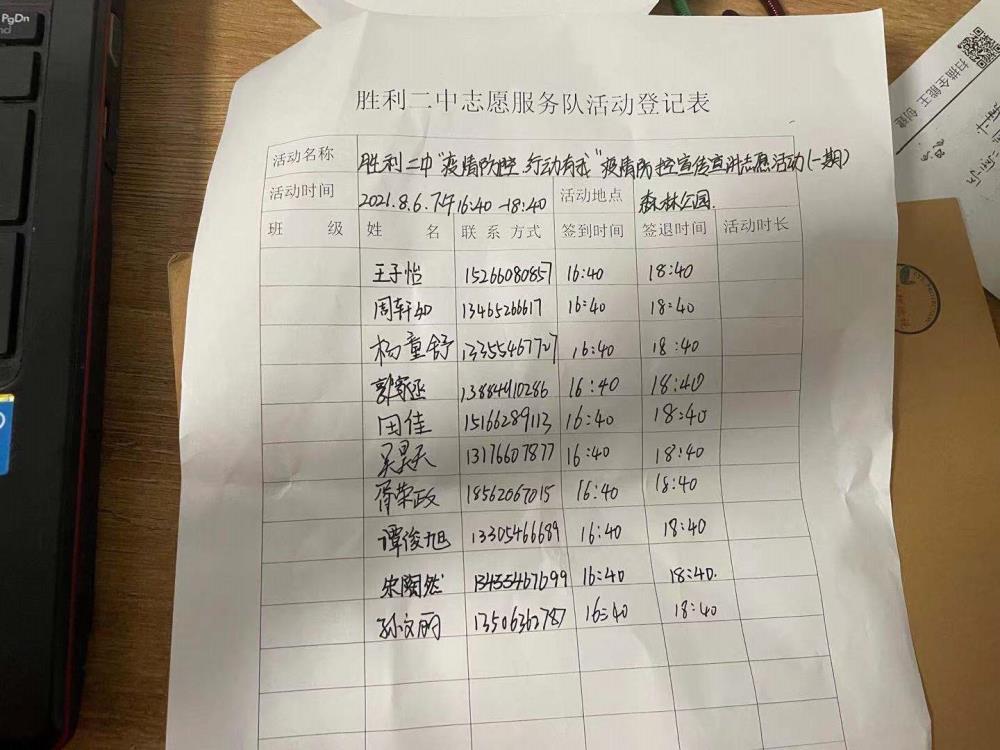 PgDn
胜利二中志愿服务队活动登记表
活动名称 胜利二中“疫情防控 行动有我”疫情防控宣传 志愿活动(一期)
活动时间 2021.8.6.下午16:40-18:40 活动地点 森林公园.
班 级 姓 名 联系方式 签到时间 签退时间 活动时长
王子怡 15266080857 16:40 18:40
周轩如 13465266617 16:40 18:40
杨童舒 13355467727 16:40 18:40
郭家丞 13884910286 16:40 18:40
田佳 15166289113 16:40 18:40
吴昊天 13176607877 16:40 18:40
胥荣政 18562067015 16:40 18:40
谭俊旭 13305466689 16:40 18:40
宋陶然 13455467699 16:40 18:40.
孙文丽 13506362787 16:40 18:40
扫描全能王 创建